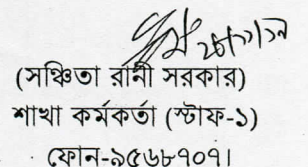 (সঞ্চিতা রানী সরকার)
শাখা কর্মকর্তা (স্টাফ-১)
ফোন-৯৫৬৮৭০৭।